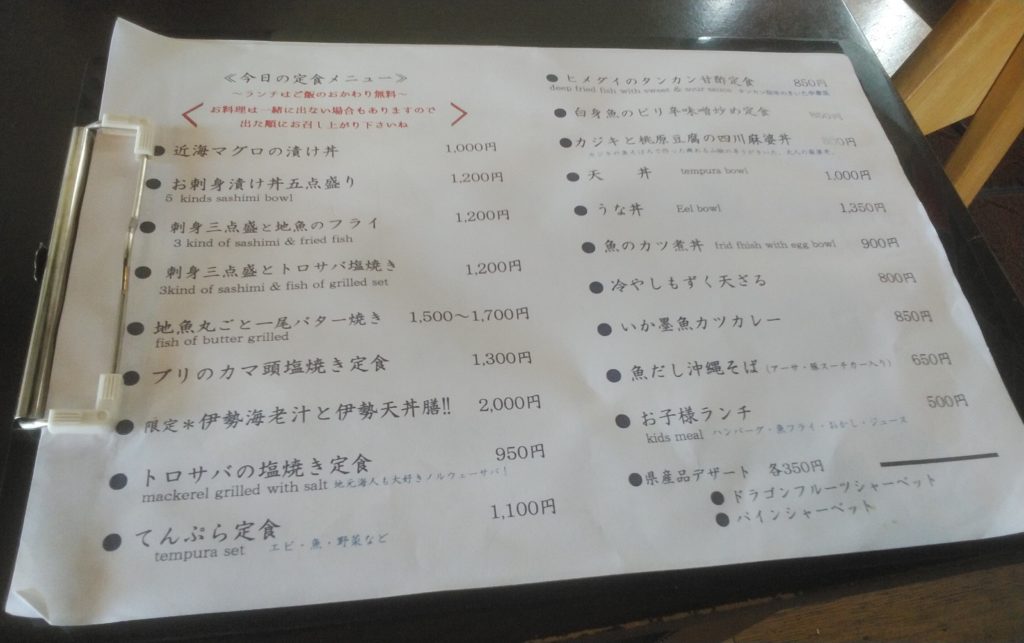 ≪今日の定食メニュー≫
～ランチはご飯のおかわり無料～
お料理は一緒に出ない場合もありますので
出た順にお召し上がり下さいね
●近海マグロの漬け丼 1,000円
●お刺身漬け丼五点盛り 1,200円
5 kinds sashimi bowl
●刺身三点盛と地魚のフライ 1,200円
3 kind of sashimi & fried fish
●刺身三点盛とトロサバ塩焼き 1,200円
3kind of sashimi & fish of grilled set
●地魚丸ごと一尾バター焼き 1,500～1,700円
fish of butter grilled
●ブリのカマ頭塩焼き定食 1,300円
●限定＊伊勢海老汁と伊勢天丼膳!! 2,000円
●トロサバの塩焼き定食 950円
mackerel grilled with salt 地元海人も大好きノルウェーサバ！
●てんぷら定食 1,100円
tempura set エビ・魚・野菜など
●ヒメダイのタンカン甘酢定食 850円
deep fried fish with sweet & sour sauce
●白身魚のピリ辛味噌炒め定食
●カジキと桃原豆腐の四川麻婆丼
●天 丼 tempura bowl 1,000円
●うな丼 Eel bowl 1,350円
●魚のカツ煮丼 frid fhish with egg bowl 900円
●冷やしもずく天ざる 800円
●いか墨魚カツカレー 850円
●魚だし沖縄そば（アーサ・豚スーチカー入り） 650円
●お子様ランチ 500円
kids meal ハンバーグ・魚フライ・おかし・ジュース
●県産品デザート 各350円
●ドラゴンフルーツシャーベット
●パインシャーベット